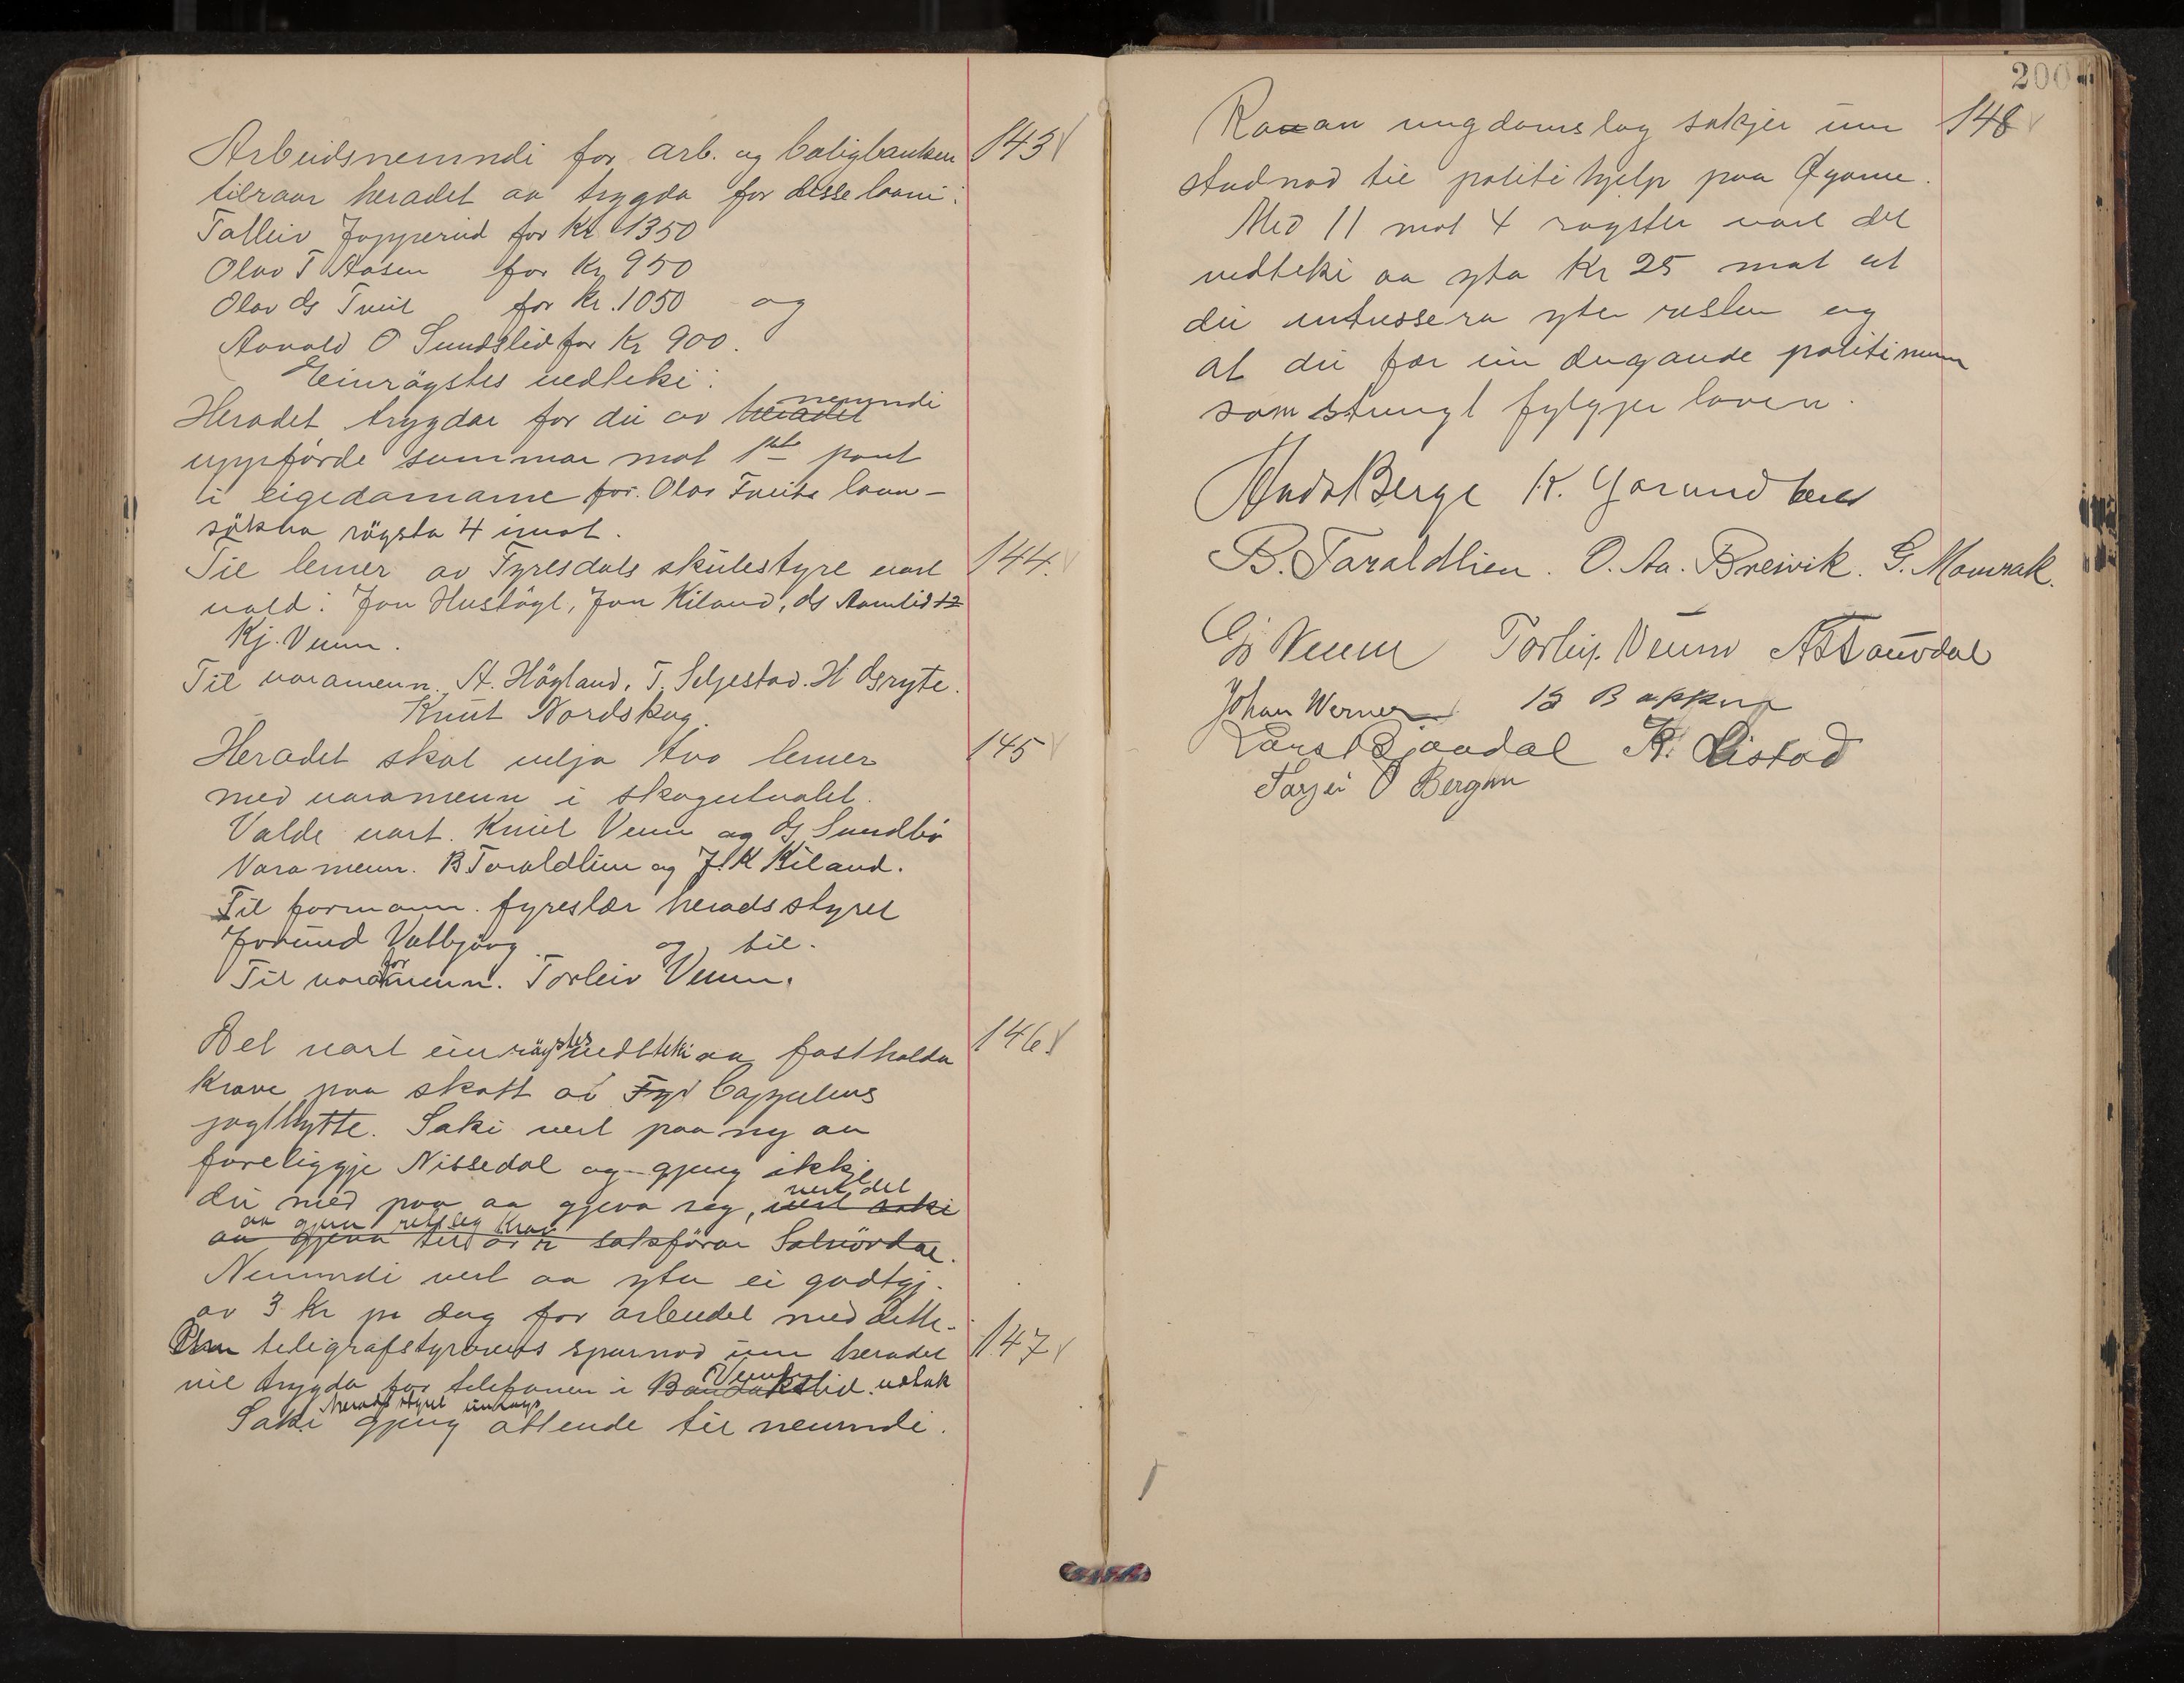 Arbeidsnemndi for arb. og boligbanken 143
tilraar heradet aa trygda for desse laani:
Talleiv Jopperud for Kr 1350
Olav T Aasen for Kr 950
Olav Gs Tveit for kr. 1050 og
Aanald O Sundslid for Kr 900.
Einrøystes vedteki:
Heradet trygdar for dei av heradet nemndi
uppførde summar mot 1ste pant
i eigedomarne for. Olav Tveits laan-
søkna røysta 4 imot.
Til lemer av Fyresdals skulestyre vart 144.
vald: Jon Hustøyl, Jon Kiland, Gs Aamlid
Kj. Veum.
Til varamenn. A. Høgland. T. Seljestad. H Gryte.
Knut Nordskog.
Heradet skal velja tvo lemer 145
med varamenn i skogutvalet.
Valde vart. Knut Veum og G Sundbø
Varamenn. B Taraldlien og J. K Kiland.
Til formann. fyreslær heradsstyret
Jorund Vatbjørg og til.
Til vara for menn. Torleiv Veum.
Det vart einrøystes vedteki aa fasthalda 146
krave paa skatt av Fyr Cappelens
jagthytte. Saki vert paa ny aa
foreliggje Nissedal og gjeng ikkje
dei med paa aa gjeva seg, vert saki vert det
aa gjeva til aa gjera retsleg Krav saksførar Salvørdal.
Nemndi vert aa yta ei godtgj.
av 3 Kr pr dag for arbeidet med dette.
Um telegrafstyrets spurnad um heradet 147
vil trygda for telefonen i Bandakslid Veum. vedtak
Saki heradstyret gjeng attende til nemndi.
200
Raaan ungdomslag søkjer um 148
studnad til politihjelp paa Øyane.
Med 11 mot 4 røyster vart det
vedteki aa yta Kr 25 mot at
dei intressera yter resten og
at dei fær ein dugande politimann
som strengt fylgjer loven.
Andr Berge K. Gorund
B. Taraldlien. O. Aa. Breivik. G. Momrak.
Gj Veum Torleiv Veum
Johan Werner
Lars Bjaadal K. Listad
Tarjei O Bergan